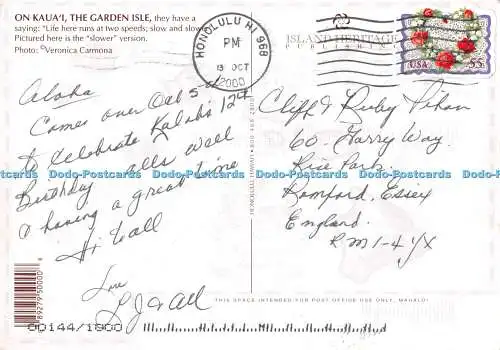 ON KAUA'I, THE GARDEN ISLE, they have a
saying: "Life here runs at two speeds; slow and slow
Pictured here is the "slower" version.
Photo: ©Veronica Carmona
HONOLULU HI 968
PM
13 OCT
2000
ISLAND HERITAGE
PUBLISHING
USA
55
Aloha
Came over Oct 5th
to celebrate Kalab's 12th
Birthday alls well
& having a great time
Hi to all
Love
L J & All
Cliff & Ruby
60. Harry Way.
Rise Park.
Romford, Essex
England.
RM1-4YX
HONOLULU, HAWAI'I
Dodo-Postcards Dodo-Postcards Dodo-Postcards Dodo-Postcards
THIS SPACE INTENDED FOR POST OFFICE USE, MAHALO!
89279 50000
00144/1800